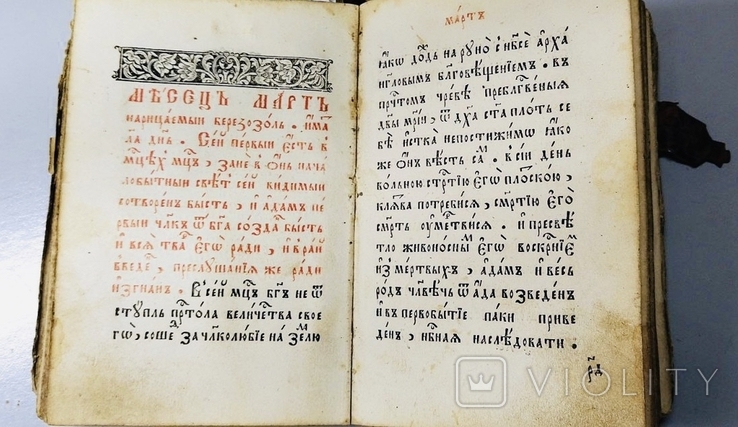 МѢСЕЦЪ МАРТЪ
нарицаемыи березозоль . има
ла дн҃ѣ . Сеи первыи есть в
мцⷭ҇ѣхъ мцⷭ҇ъ , зане в онь нача
лобытныи свѣтъ сеи видимыи
сотворенъ бысть , и адамъ пе
рвыи чл҃къ ѿ бг҃а созда бысть
и вся тва его ради , и в раи
введе , преслушанїя же ради
изгнан . В сеи мцⷭ҇ъ бг҃ъ не ѿ
ступль прⷭ҇тола величества свое
го , соше за чл҃колюбїе на землю
мартъ
яко дождь на руно с нб҃се арха
нгловымъ благовѣщенїемъ . въ
прⷭ҇чтомъ чревѣ преблг҃вения
дв҃ы мр҃їи , ѿ дх҃а ст҃а плоть се
бѣ истка непостижимо яко
же онъ вѣсть са . в сїи день
вольною стрⷭ҇тїю его плоскою ,
клятва потребися , смр҃тїю его
смр҃ть умертвися . и пресвѣ
тло живоносны его воскрⷭ҇нїе
из мертвыхъ , адамъ и весь
родъ чл҃вечь ѿ ада возведен
и в первобытїе паки приве
ден , нб҃ная наслѣдовати .
рд
VIOLITY